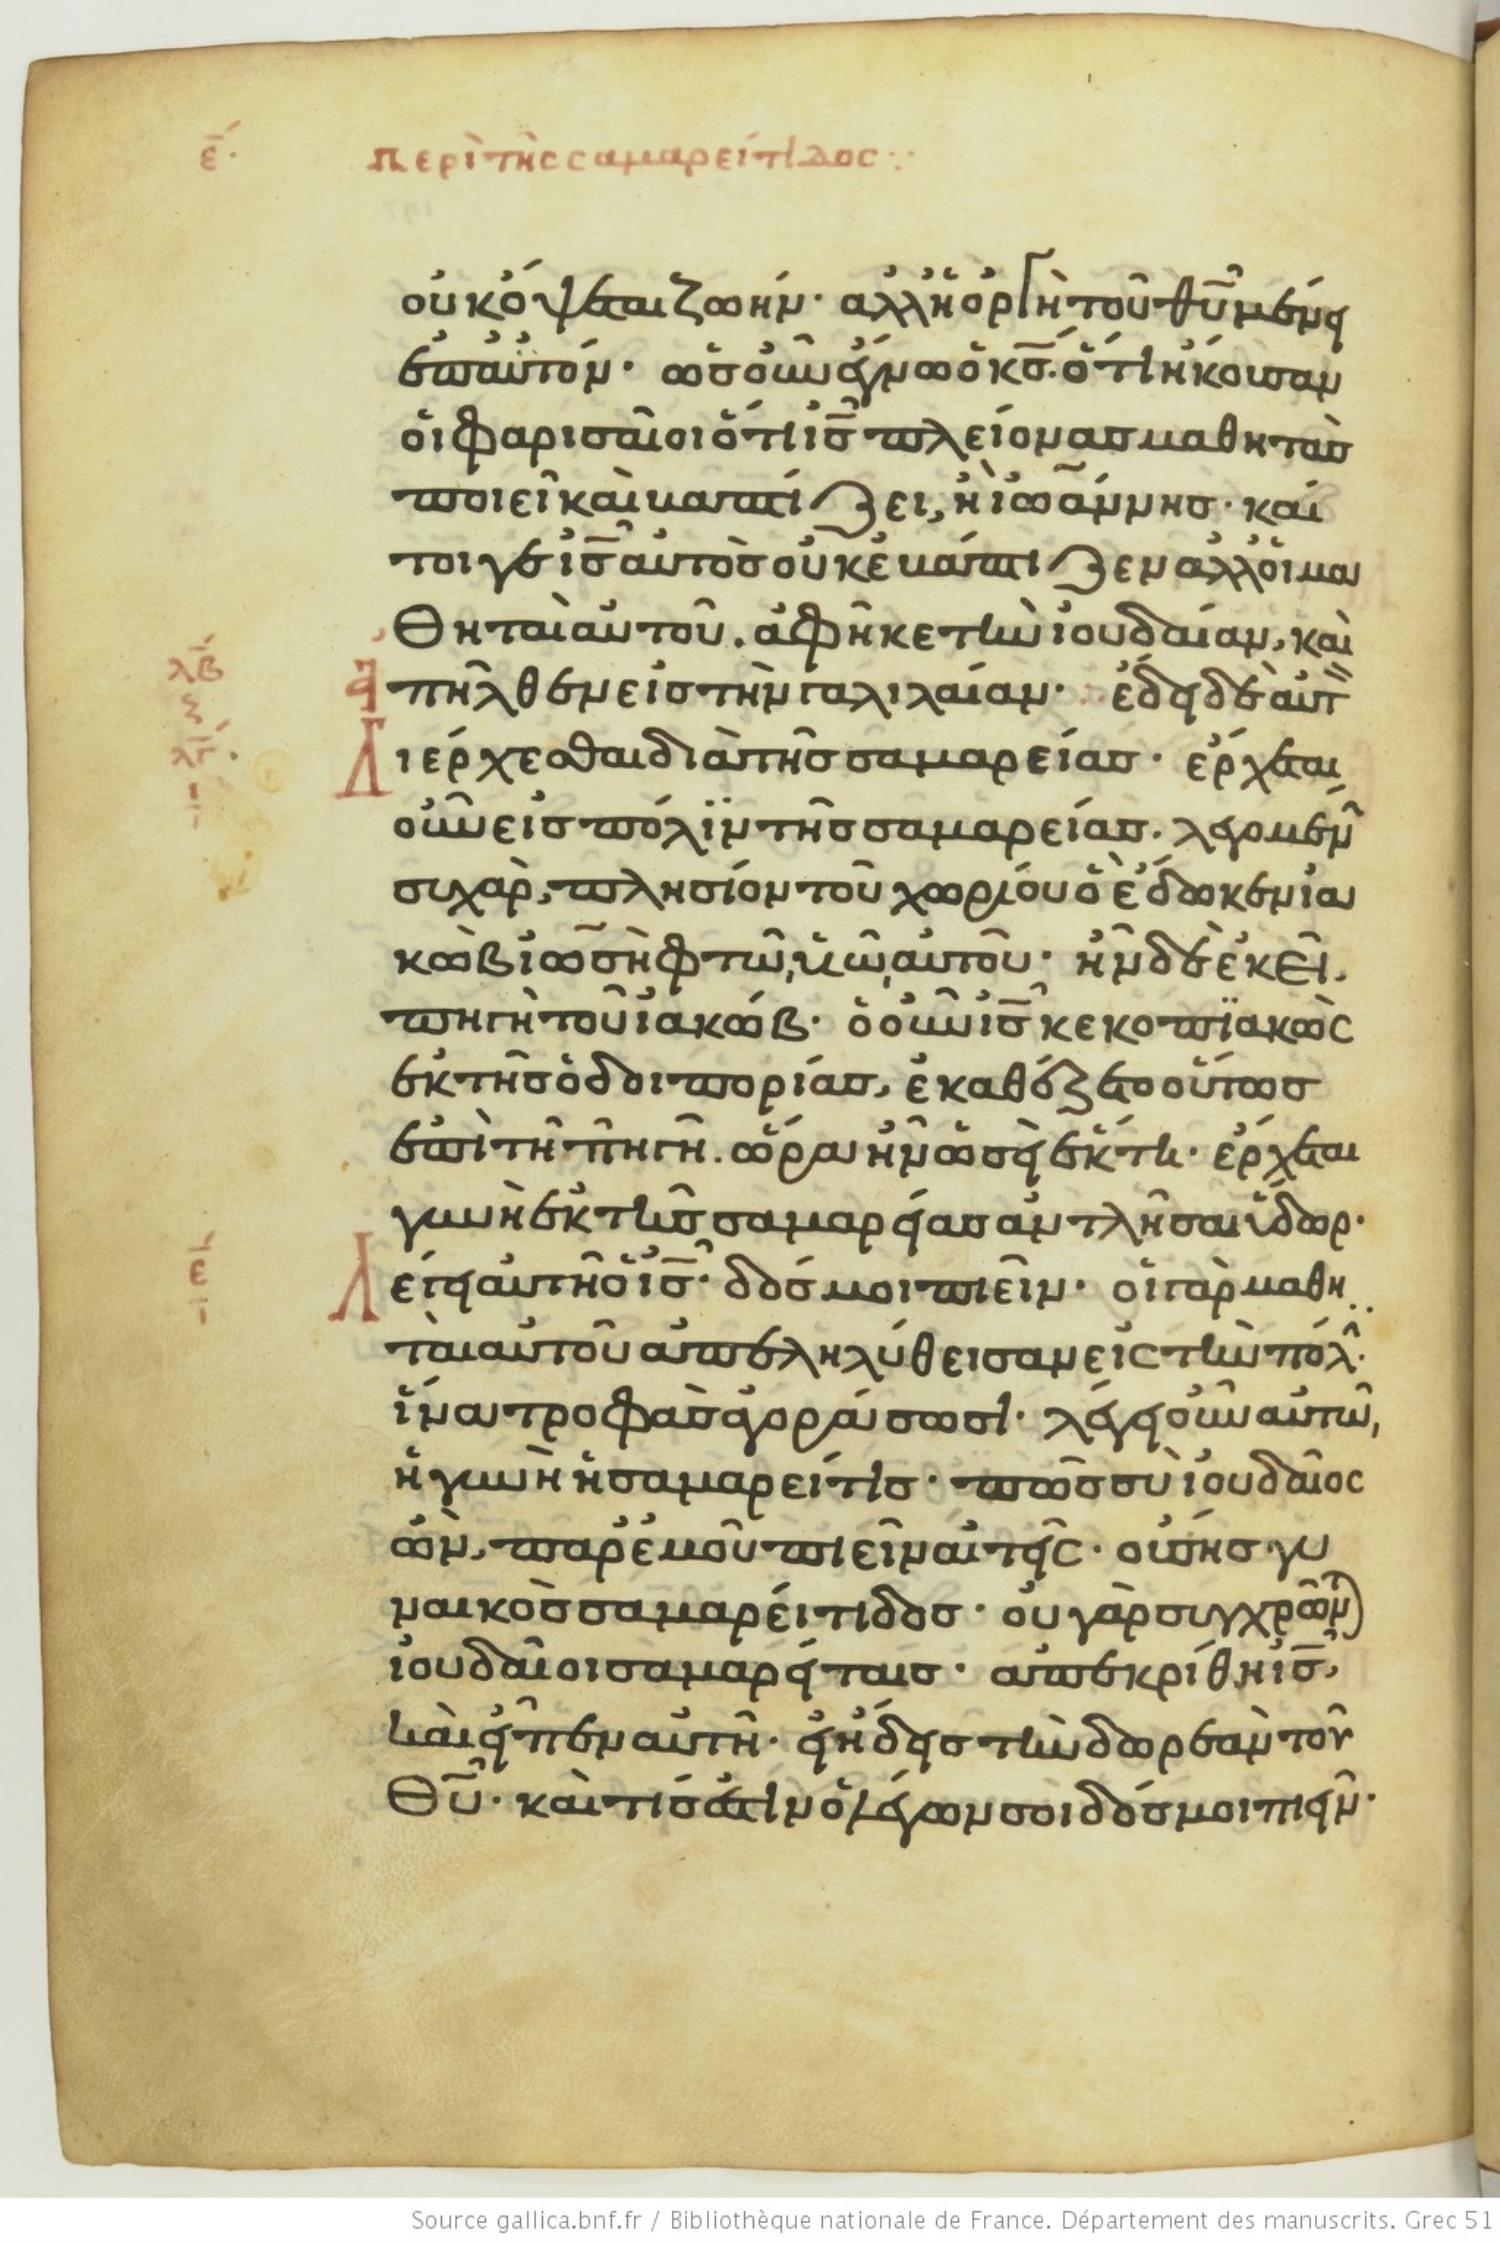 ε̄· περὶ τῆς σαμαρείτιδος
οὐκ ὄψεται ζωήν· ἀλλ' ἡ ὀργὴ τοῦ θ̅υ̅ μένει
ἐπ' αὐτόν· ὡς οὖν ἔγνω ὁ κ̅σ̅· ὅτι ἤκουσαν
οἱ φαρισαῖοι ὅτι ι̅σ̅ πλείονας μαθητὰς
ποιεῖ καὶ βαπτίζει, ἢ ἰωάννησ· καί
τοιγε ι̅σ̅ αὐτὸς οὐκ ἐβάπτιζεν ἀλλ' οἱ μα
θηταὶ αὐτοῦ. ἀφῆκε τὴν ἰουδαίαν, καὶ
λ̅β̅ ἀπῆλθεν εἰς τὴν γαλιλαίαν· ἔδει δὲ αὐτ
ζ
λ̅γ̅ διέρχεσθαι διὰ τῆς σαμαρείας· ἔρχεται
ι
οὖν εἰς πόλϊν τῆς σαμαρείας. λεγομέν
συχὰρ, πλησίον τοῦ χωρίου ὃ ἔδωκεν ἰα
κὼβ ἰωσὴφ τῶ, υἱῶ, αὐτοῦ· ἦν δὲ ἐκεῖ.
πηγὴ τοῦ ἰακώβ· ὁ οὖν ι̅σ̅ κεκοπϊακὼς
ἐκ τῆς ὁδοιπορίας, ἐκαθέζετο οὕτως
ἐπὶ τῆ πηγῆ. ὥρα ἦν ὡσεὶ ἕκτη· ἔρχεται
γυνὴ ἐκ τῆς σαμαρείας ἀντλῆσαι ὕδωρ·
ε λέγει αὐτῆ ὁ ι̅σ̅· δός μοι πιεῖν· οἱ γὰρ μαθη
ταὶ αὐτοῦ ἀπεληλύθεισαν εἰς τὴν πόλ·
ἵνα τροφὰς ἀγοράσωσι· λέγει οὖν αὐτῶ,
ἡ γυνὴ ἡ σαμαρείτις· πῶς σὺ ἰουδαῖος
ὢν, παρ' ἐμοῦ πιεῖν αἰτεῖς· οὔσης γυ
ναικὸς σαμαρείτιδος· οὐ γὰρ συγχρῶν
ἰουδαῖοι σαμαρείταις· ἀπεκρίθη ι̅σ̅,
καὶ εἶπεν αὐτῆ· εἰ ἤδεις τὴν δωρεὰν τοῦ
θ̅υ̅· καὶ τίς ἐστιν ὁ λέγων σοι δός μοι πιεῖν·
Source gallica.bnf.fr / Bibliothèque nationale de France. Département des manuscrits. Grec 51